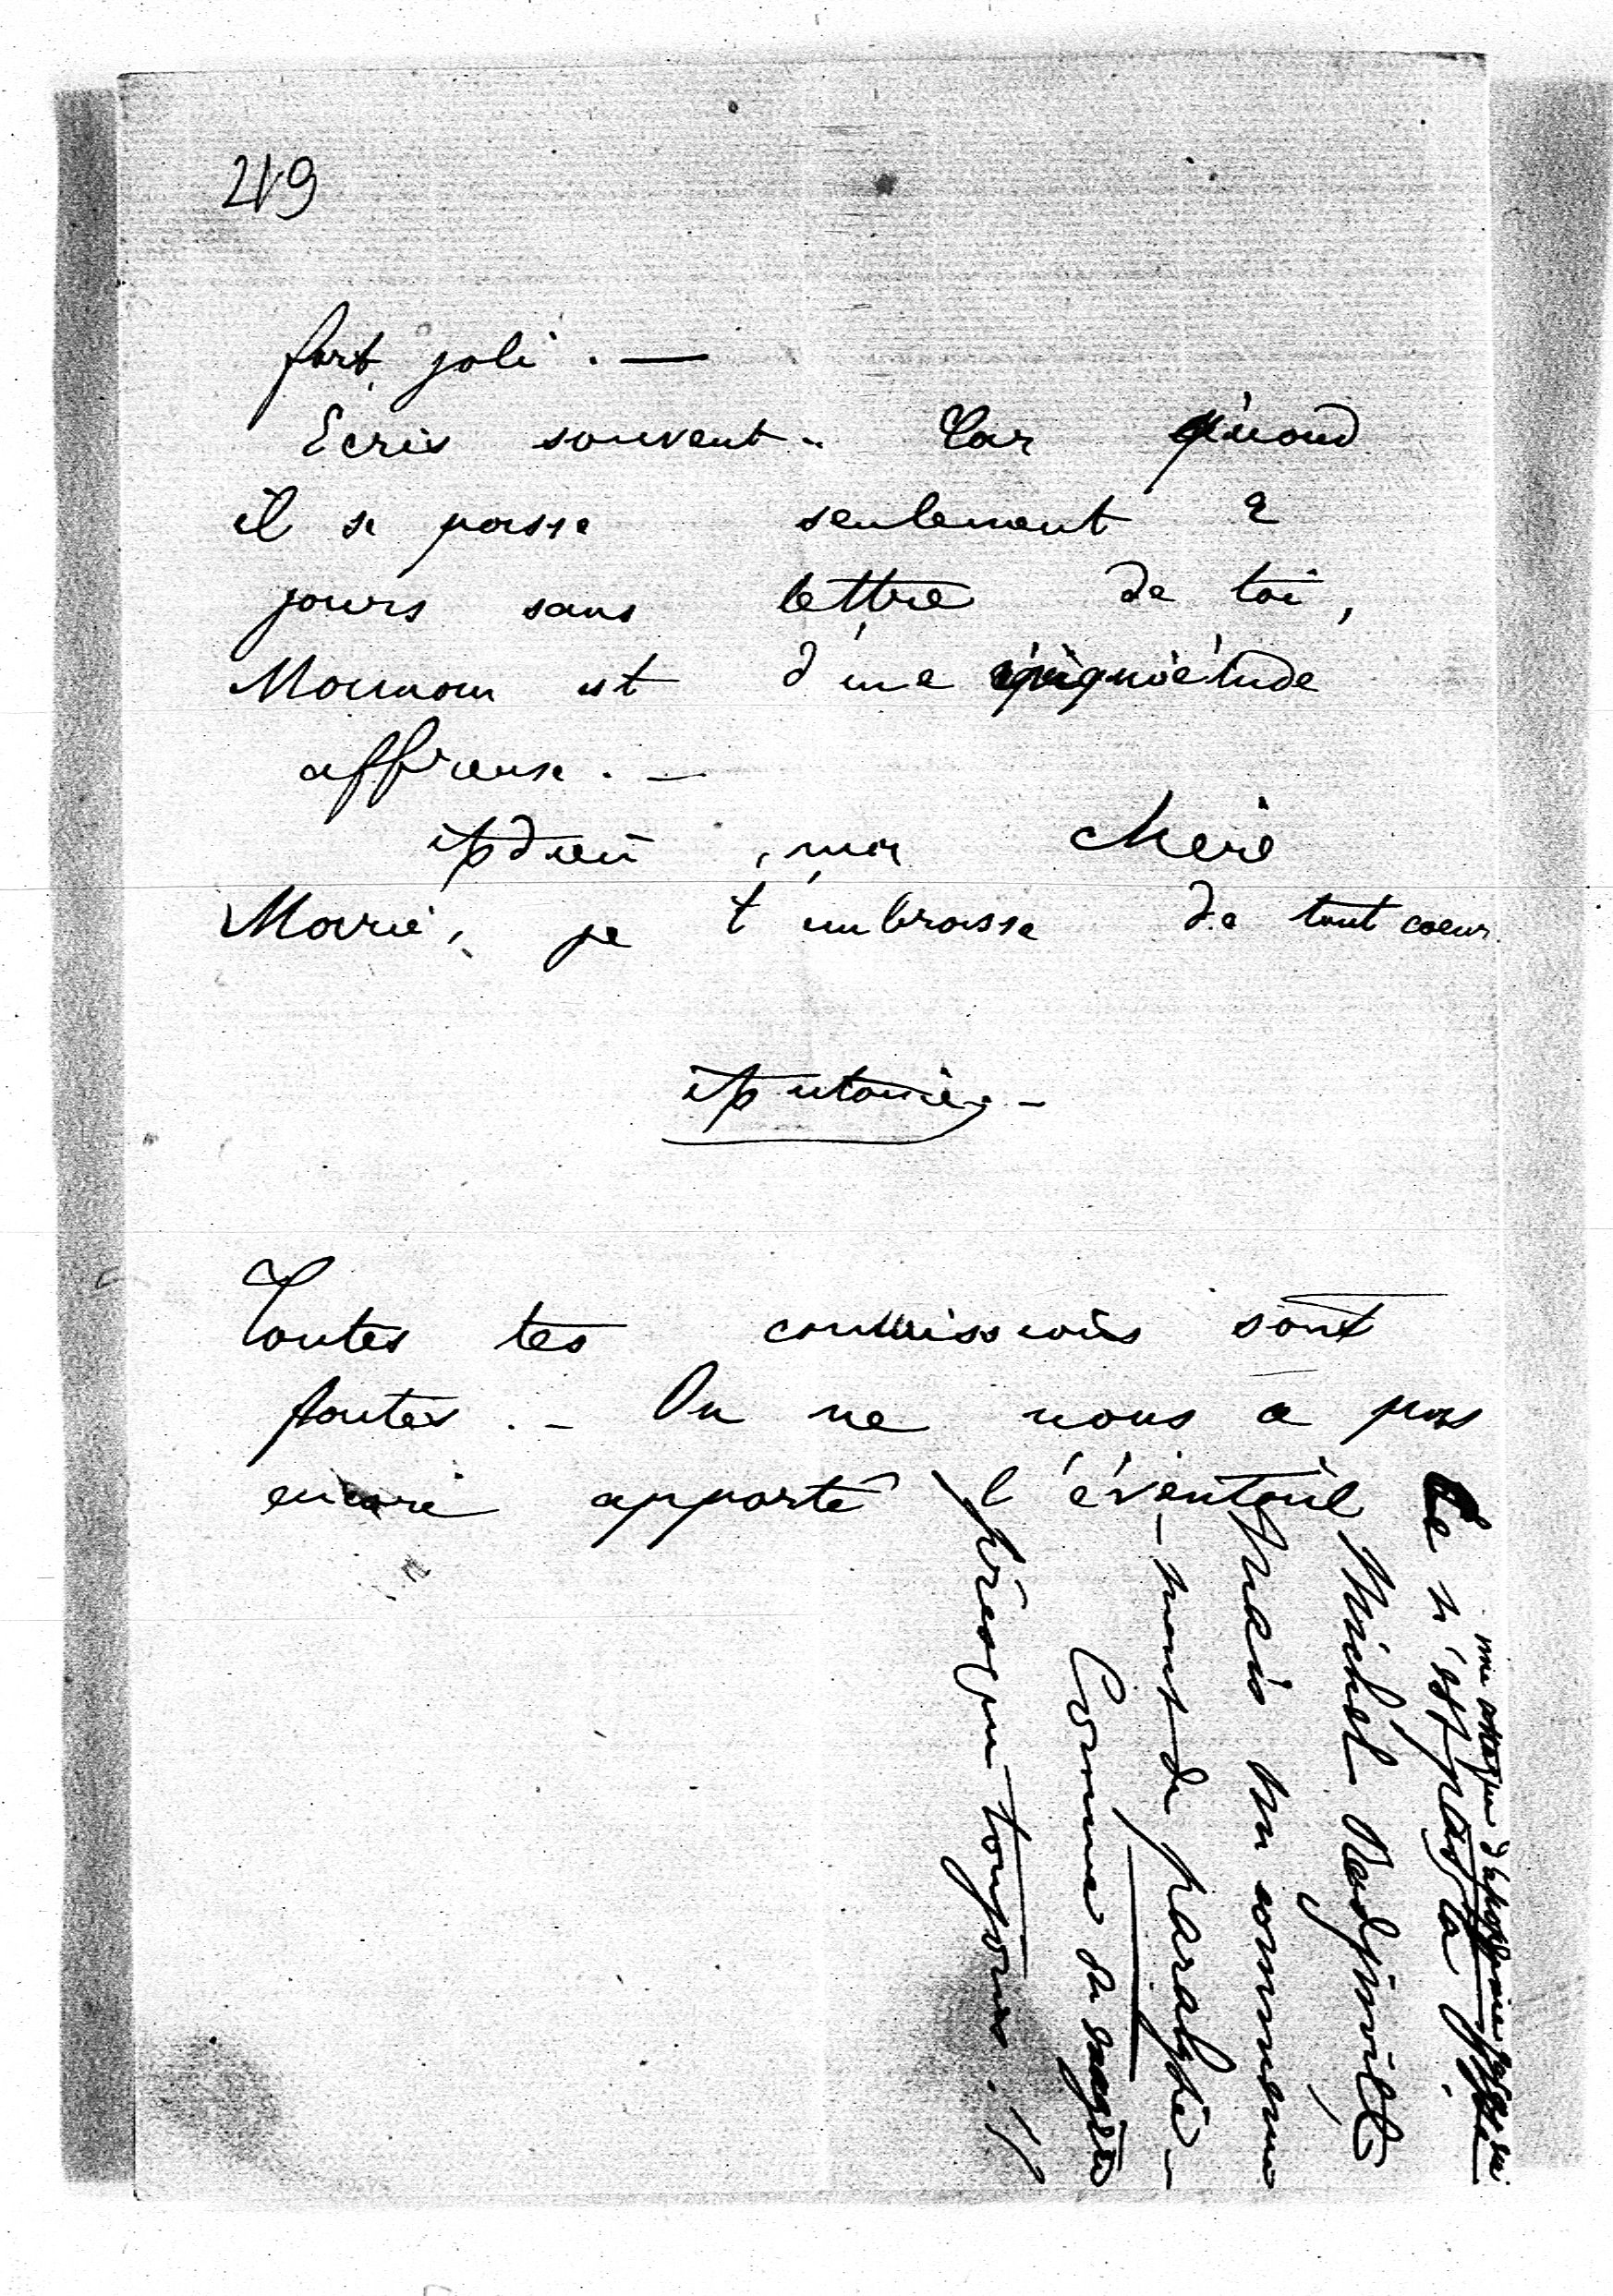 219
fort joli. —
Ecris souvent. - Car quand
il se passe seulement 2
jours sans lettre de toi,
Maman est d'une inquiétude
affreuse. —
Adieu, ma chère
Marie, je t'embrasse de tout coeur.
Antoine. —
Toutes tes commissions sont
faites. - On ne nous a pas
encore apporté l'éventail
Ce n'est pas la
Michel Radziwill
mais un commence
- ment de paralysie -
Comme du
presque toujours. !!